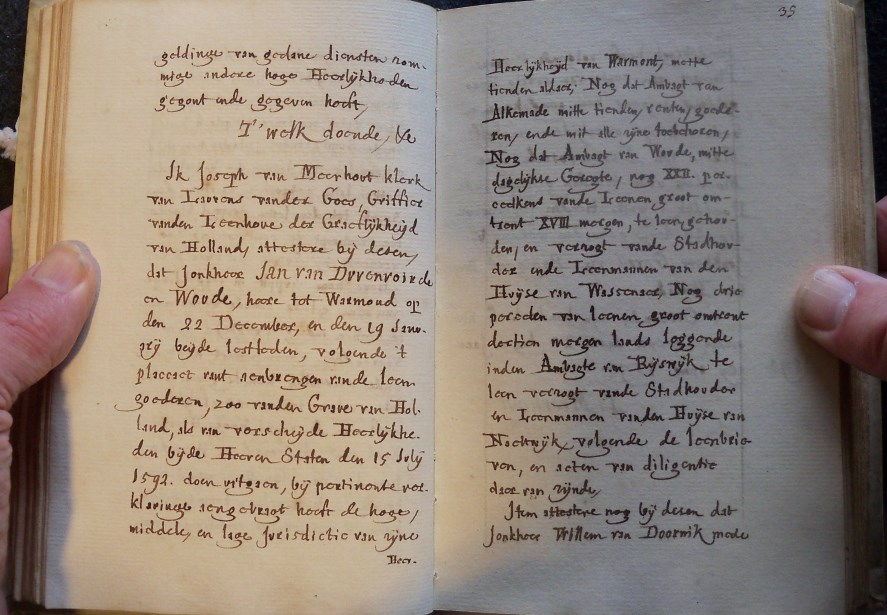 geldinge van gedane diensten som-
mige andere hoge Heerlijkheden
gegont ende gegeven heeft,
T'welk doende, &c
Ik Joseph van Meerhout klerk
van Laurens vander Goes, Griffier
vanden Leenhove der Graeflijkheijd
van Holland, attestere bij desen,
dat Jonkheer Jan van Duvenvoirde
en Woude, heere tot Warmond op
den 22 December, en den 19 Janu-
arij beijde lestleden, volgende 't
placcaet vant aenbrengen vande leen-
goederen, zoo vanden Grave van Hol-
land, als van verscheijde Heerlijkhe-
den bijde Heeren Staten den 15 Julij
1592. doen uitgaen, bij pertinente ver-
klaringe aengebragt heeft de hoge,
middele, en lage Jurisdictie van zijne
Heer-
35
Heerlijkheijd van Warmont, mette
tienden aldaer, Nog dat Ambagt van
Alkemade mitte tienden, renten, goede-
ren, ende mit alle zijne toebehoren,
Nog dat Ambagt van Woude, mitte
dagelijkse Geregte, nog XXII. per-
ceelkens vande Leenen, groot om-
trent XVIII morgen, te leen gehou-
den, en verzogt vande Stadhou-
der ende Leenmannen van den
Huijse van Wassenaer, Nog drie
perceelen van leenen, groot omtrent
dertien morgen lands leggende
inden Ambagte van Rijswijk te
leen verzogt vande Stadhouder
en Leenmannen vanden Huijse van
Noortwijk, volgende de leenbrie-
ven, en acten van diligentie
daer van zijnde,
Item attestere nog bij desen dat
Jonkheer Willem van Doornik mede